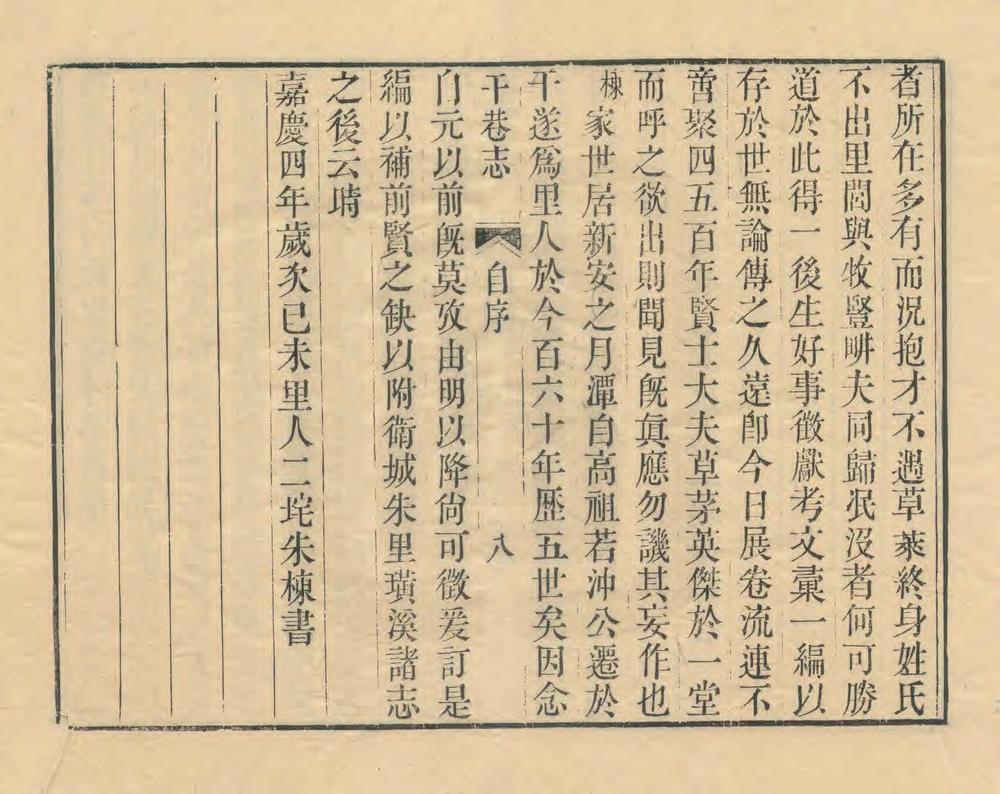 者所在多有而況抱才不遇草萊終身姓氏
不出里閭與牧豎畊夫同歸泯沒者何可勝
道於此得一後生好事徵獻考文彙一編以
存於世無論傳之久遠卽今日展卷流連不
啻聚四五百年賢士大夫草茅英傑於一堂
而呼之欲出則聞見旣眞應勿譏其妄作也
棟家世居新安之月潭自高祖若沖公遷於
干遂爲里人於今百六十年歷五世矣因念
干巷志 自序 八
自元以前旣莫攷由明以降尙可徵爰訂是
編以補前賢之缺以附衛城朱里璜溪諸志
之後云時
嘉慶四年歲次已未里人二垞朱棟書